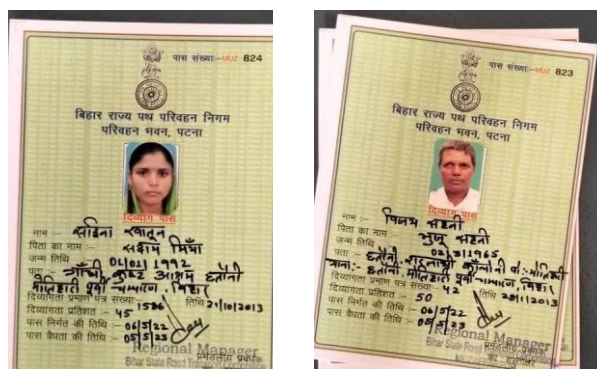 पास संख्याः-MUZ 824
बिहार राज्य पथ परिवहन निगम
परिवहन भवन, पटना
दिव्यांग पास
नाम :- साईना खातून
पिता का नाम :-
जन्म तिथि 01/01/1992
पता :- गाँधी कुष्ट आश्रम छतौनी
मोतिहारी पूर्वी चम्पारण, बिहार
दिव्यांगता प्रमाण पत्र संख्या:- 1526 तिथि 21/10/2013
दिव्यांगता प्रतिशत :- 45
पास निर्गत की तिथि :- 06/5/22
पास वैधता की तिथि :- 05/5/23
Regional Manager
Bihar State Road
पास संख्याः-MUZ 823
बिहार राज्य पथ परिवहन निगम
परिवहन भवन, पटना
दिव्यांग पास
नाम :- विजय सहनी
पिता का नाम :- सहनी
जन्म तिथि
पता :- छतौनी
थाना:- छतौनी, मोतिहारी पूर्वी चम्पारण, बिहार
दिव्यांगता प्रमाण पत्र संख्या:- 42
दिव्यांगता प्रतिशत :- 50
पास निर्गत की तिथि :- 06/5/22
पास वैधता की तिथि :- 05/5/23
Regional Manager
Bihar State Road